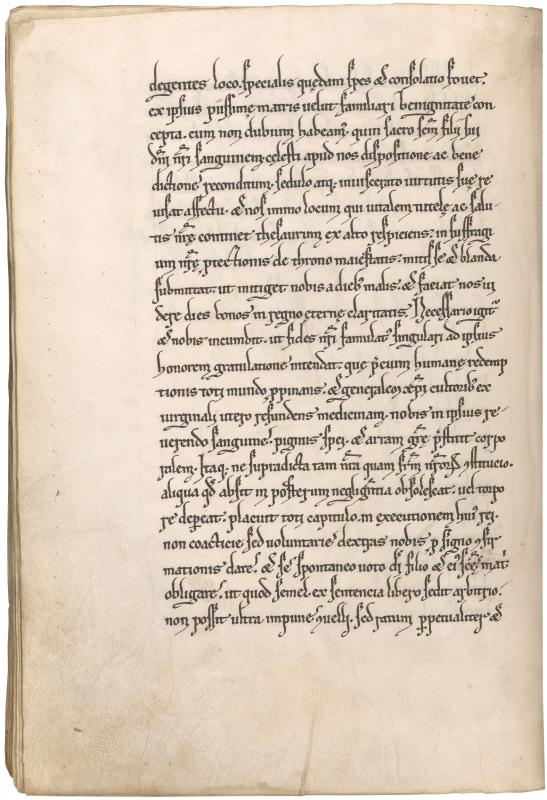 degentes loco. specialis quędam spes & consolatio fouet.
ex ipsius piissimę matris uelut familiari benignitate con
cepta. cum non dubium habeam᷒. quin sacro sc̄m filii sui
dn̄i nr̄i sanguinem celesti apud nos dispositione ac bene
dictione reconditum. sedulo atq; inuiscerato uirtutis suę re
uisat affectu. & nos immo locum qui uitalem tutelę ac salu
tis nr̄ę continet thesaurum ex alto respiciens. in suffragi
um nr̄ę ꝓtectionis de throno maiestatis. mitis se & blanda
submittat. ut mitiget nobis a dieb᷒ malis. & faciat nos ui
dere dies bonos in regno eternę claritatis. Necessario igit᷑
& nobis incumbit. ut fides nr̄i famulat᷒ singulari ad ipsius
honorem gratulatione intendat. que p̄cium humanę redemp
tionis toti mundo ꝓpinans. & generalem xp̄i cultorib᷒ ex
uirginali utero refundens medicinam. nobis in ipsius re
uerendo sanguine. pignus spei. & arram gr̄ę p̄stitit corpo
ralem. Itaq; ne supradicta tam nr̄a quam fr̄m nr̄oꝝ ꝯstitucio.
aliqua qd̄ absit in posterum negligentia obsolescat. uel torpo
re depereat. placuit toti capitulo. in executionem hui᷒ rei.
non coacticie sed uoluntarie dextras nobis ꝑ signo ꝯfir
mationis dare. & se spontaneo uoto di filio & ei᷒ sc̄ę mat᷑
obligare. ut quod semel ex sentencia libero sedit arbitrio.
non possit ultra impune ꝯuelli. sed ratum ꝑpetualiter &